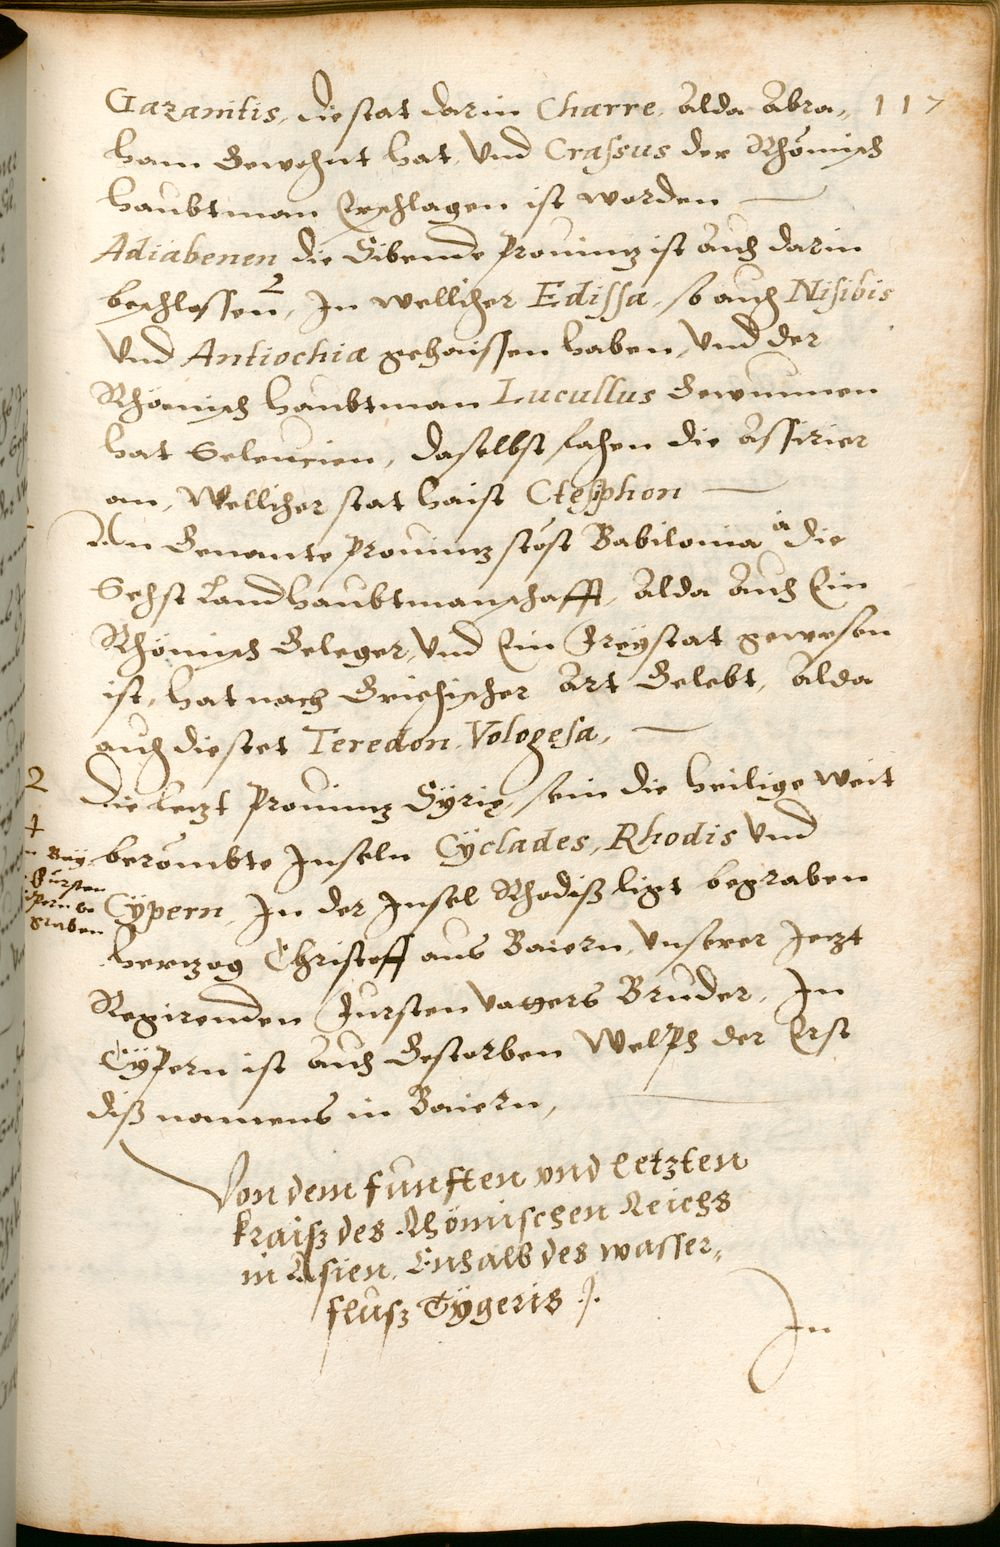 Gazanitis, die stat darin Charre, alda Abra„ 117
ham Gewohnt hat, Vnd Crassus der Rhömisch
haubtman Erschlagen ist worden
Adiabenen die Sibende prouintz ist auch darin
beschlossen, In wellicher Edissa, so auch Nisibis
Vnd Antiochia gehaissen haben, Vnd der
Rhömisch haubtman Lucullus Gewunnen
hat Seleucien, daselbst fahen die Assirier
an, Wellicher stat haist Ctesiphon
An Genante prouintz stöst Babilonia die
Sechst Landhaubtmanschafft, Alda Auch Ein
Rhömisch Geleger, Vnd Ein Freÿstat gewesen
ist, hat nach Griechischer Art Gelebt, Alda
auch die stet Teredon, Vologesa,
2
Die letzt Prouintz Sÿrię, sein die heilige weit
berömbte Inseln Cÿclades, Rhodis Vnd
Baÿ
Fürsten
graben
Cÿpern, In der Insel Rhodiß ligt begraben
hertzog Christoff aus Baiern, Vnserer Jetzt
Regirenden Fursten vatters Bruder, In
Cÿpern ist auch Gestorben Welph der Erst
diß namens in Baiern,
Von dem funften vnd letzten
kraiß des Rhömischen Reichs
in Asien, Enhalb des wasser„
fluß Tÿgeris
In